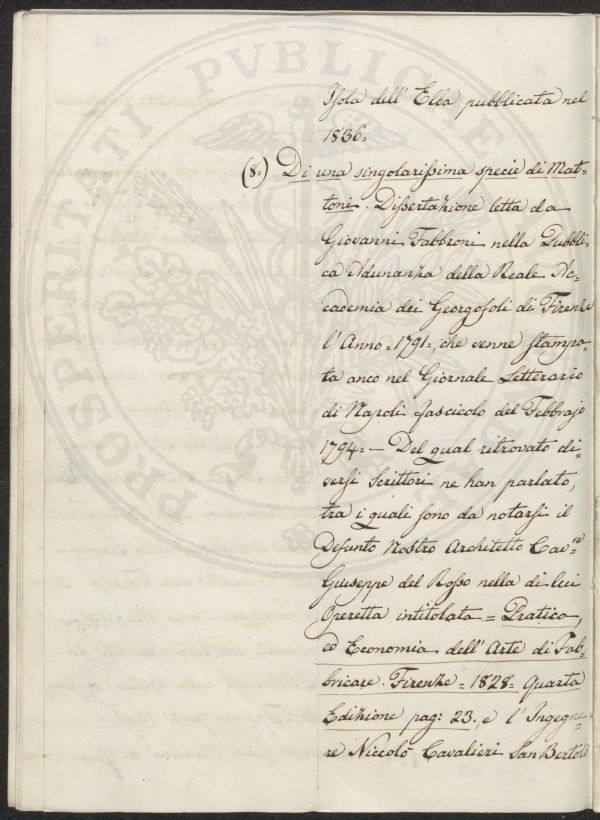 Isola dell' Elba pubblicata nel
1836=
(8=) Di una singolarissima specie di Mat=
toni. Dissertazione letta da
Giovanni Fabbroni nella Pubbli=
ca Adunanza della Reale Ac=
cademia dei Georgofoli di Firenze
l'Anno=1791=, che venne stampa=
ta anco nel Giornale Letterario
di Napoli fascicolo del Febbrajo
1794= — Del qual ritrovato di=
versi Scrittori ne han parlato,
tra i quali sono da notarsi il
Defunto Nostro Architetto Cav:re
Giuseppe del Rosso nella di lui
Operetta intitolata = Pratica,
ed Economia dell' Arte di Fab=
bricare. Firenze=1828= Quarta
Edizione pag: 23., e l'Ingegne=
re Niccolò Cavalieri San Bertolo
PROSPERITATI PVBLICAE